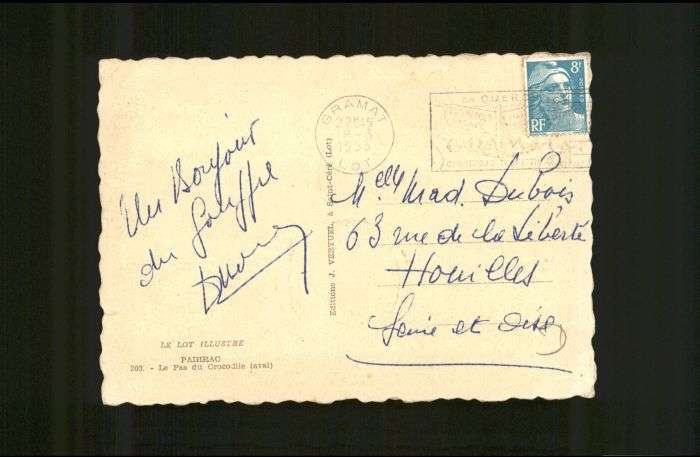 Un Bonjour
du Gouffre
LE LOT ILLUSTRÉ
PADIRAC
203. - Le Pas du Crocodile (aval)
Editions J. VERTUEL, à Saint-Céré (Lot)
GRAMAT
LOT
8F
RF
Melle Mad. Dubois
63 rue de la Liberté
Houilles
Seine et Oise